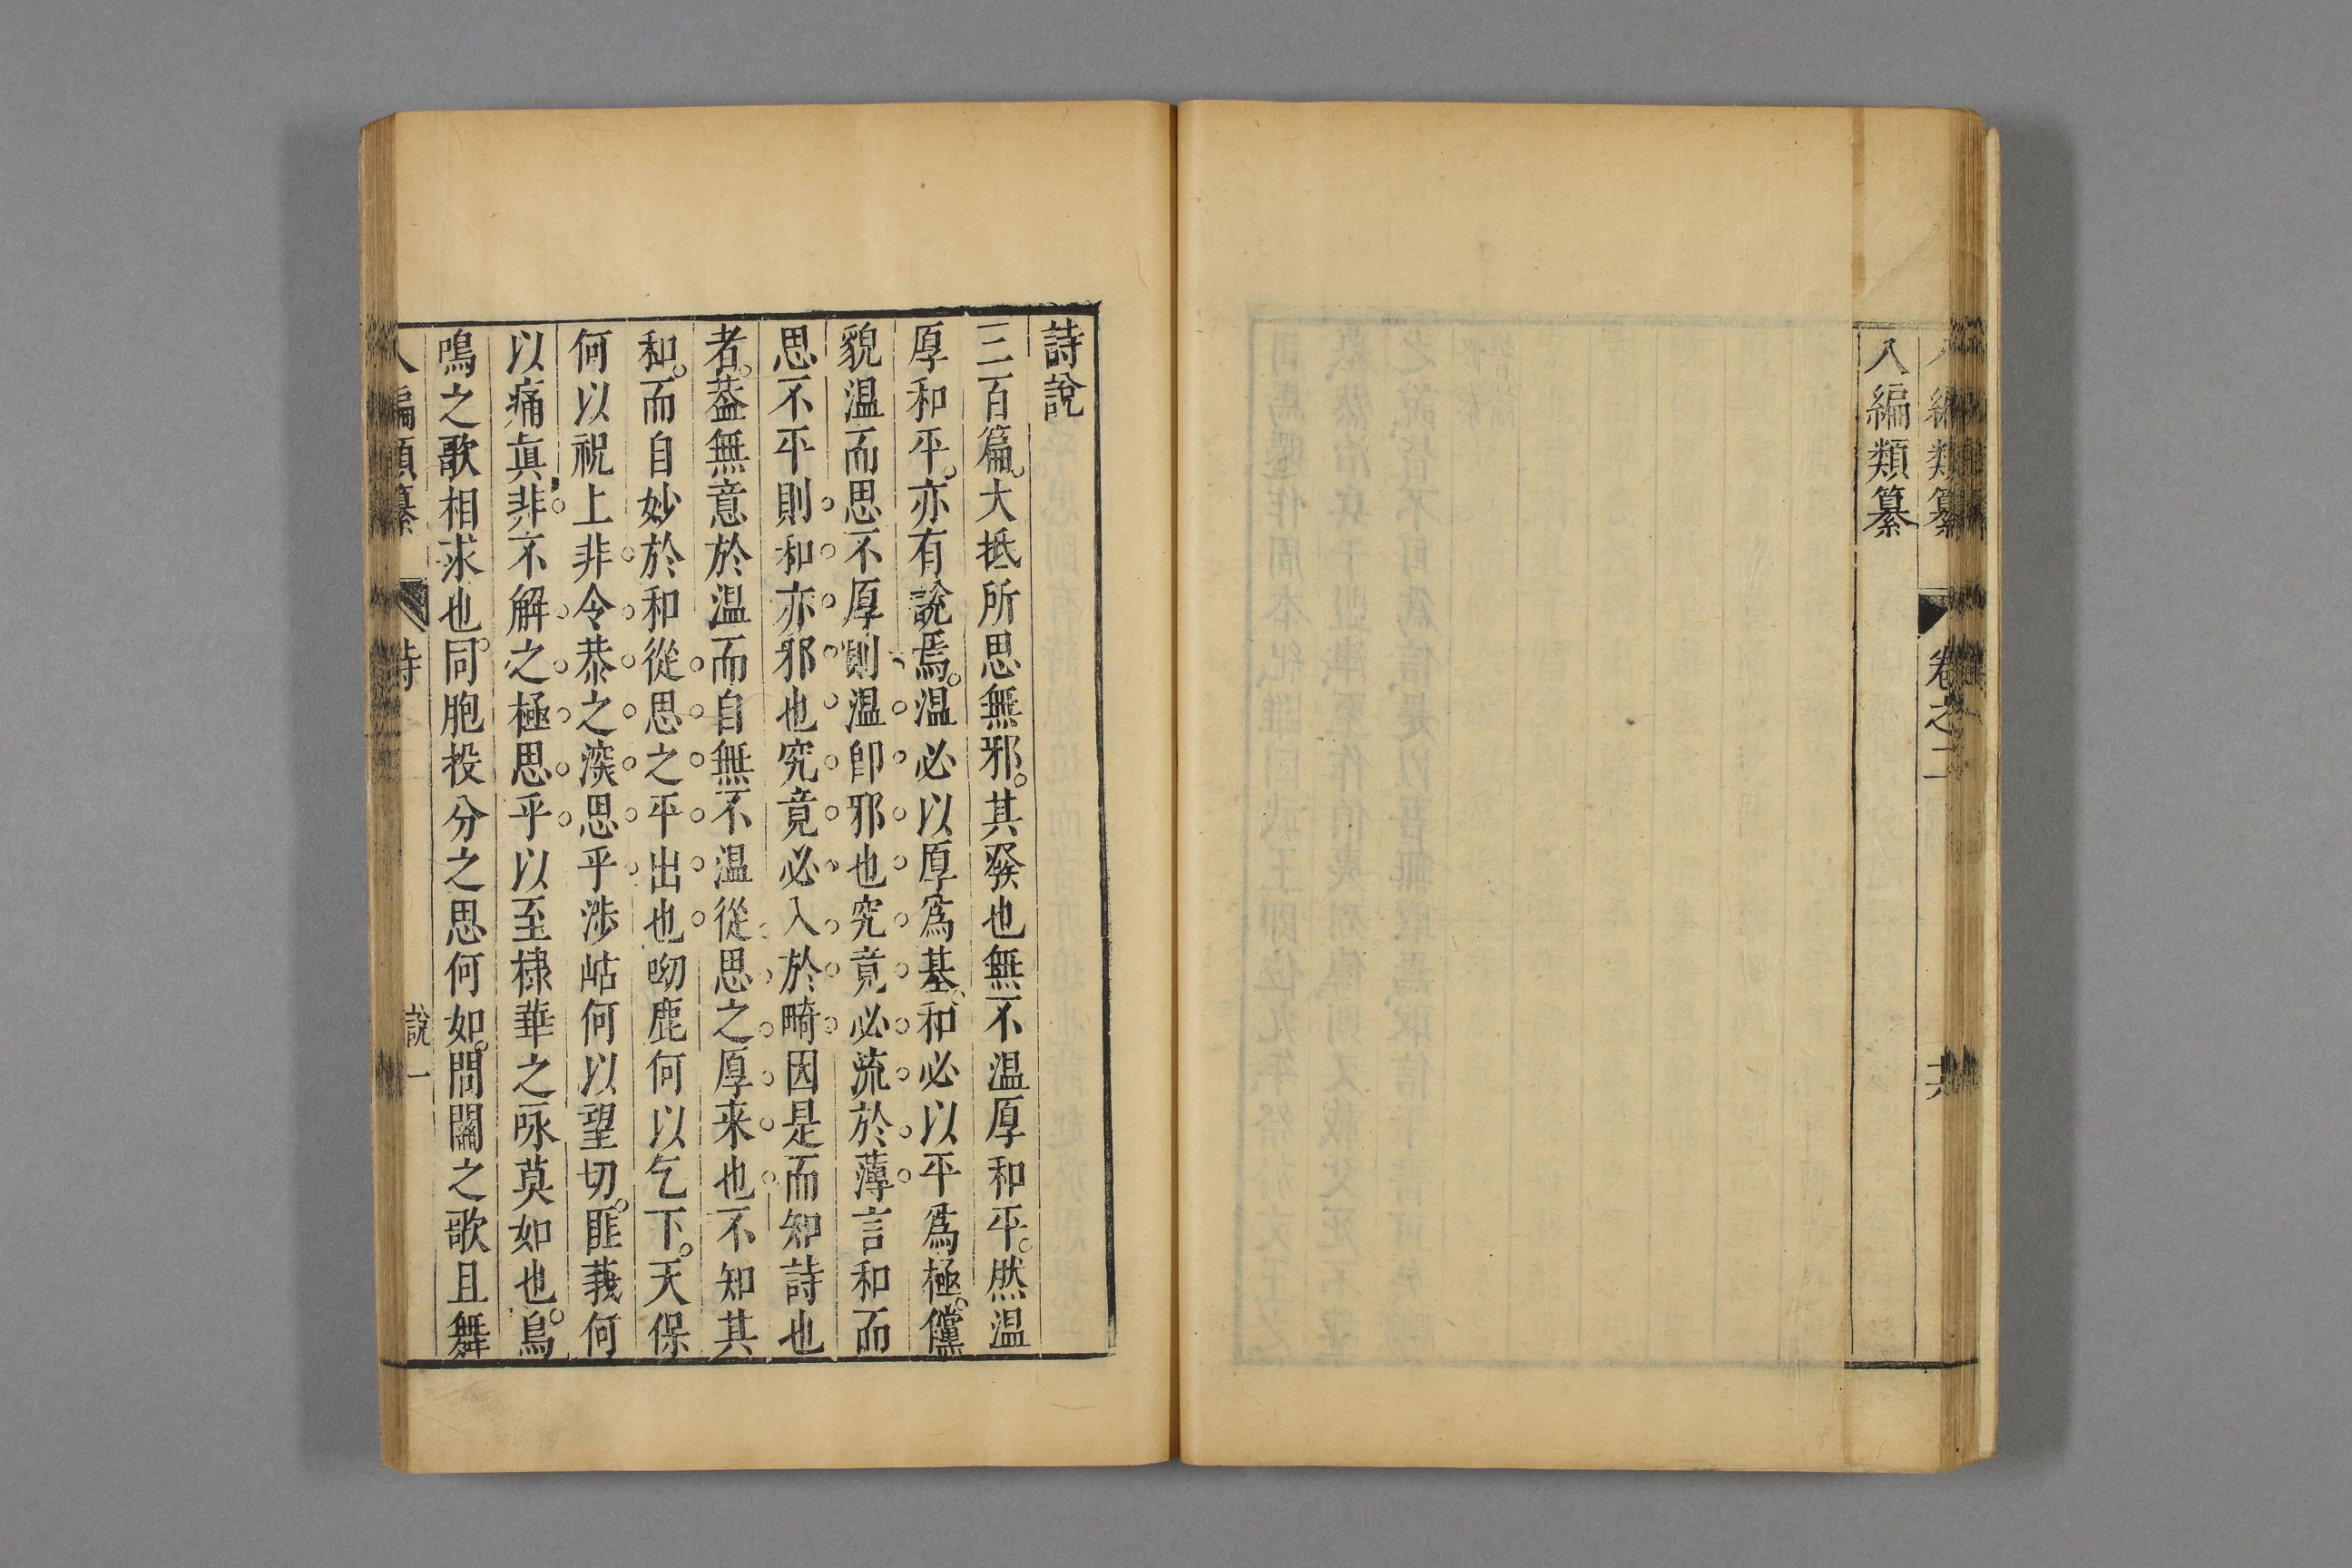 八編類纂
卷之二
八編類纂
詩說
三百篇。大抵所思無邪。其發也無不温厚和平。然温
厚和平。亦有說焉。温必以厚爲基、和必以平爲極。儻
貌温而思不厚則温卽邪也究竟必流於薄言和而
思不平則和亦邪也究竟必入於畸因是而知詩也
者。葢無意於温而自無不温從思之厚来也不知其
和。而自妙於和從思之平出也呦鹿何以乞下。天保
何以祝上非令恭之深思乎涉岵何以望切。匪莪何
以痛眞非不解之極思乎以至棣華之咏莫如也。鳥
鳴之歌相求也。同胞投分之思何如。間關之歌且舞
八編類纂
詩
說
一